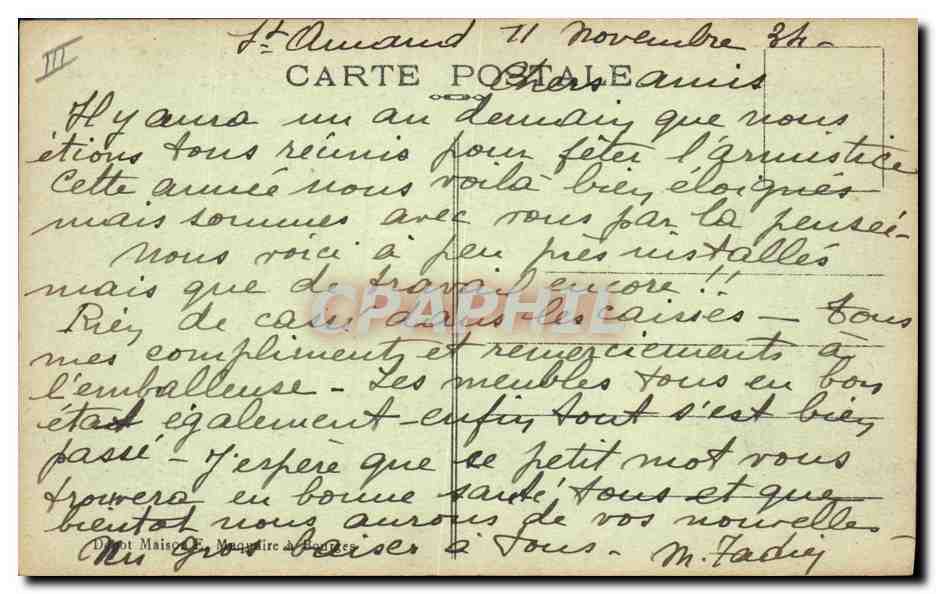 III
St Amand 11 Novembre 34-
CARTE POSTALE
Chers amis
Il y aura un an demain que nous
étions tous réunis pour fêter l'armistice
Cette année nous voilà bien éloignés
mais sommes avec vous par la pensée-
Nous voici à peu près installés
mais que de travail encore !!
Rien de cassé dans les caisses - Tous
mes compliments et remerciements à
l'emballeuse - Les meubles tous en bon
état également enfin tout s'est bien
passé - J'espère que ce petit mot vous
trouvera en bonne santé, tous et que
bientot nous aurons de vos nouvelles
Dépot Maison F. Maquaire à Bourges
Un gros baiser à Tous - M.
CPAPHIL